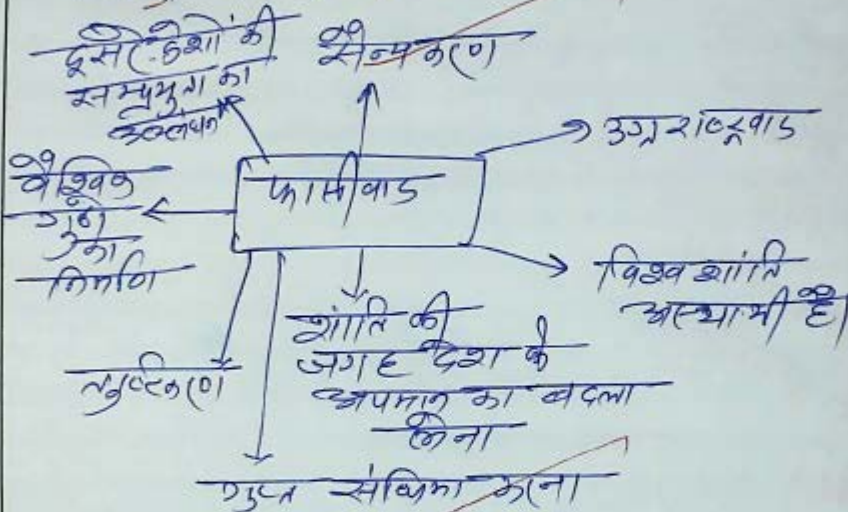 दूसरे देशों की
सम्प्रभुता का
उल्लंघन
सैन्यकरण
उग्र राष्ट्रवाद
वैश्विक
गुटों
का
निर्माण
फासीवाद
विश्व शांति
अस्थायी है।
शांति की
जगह देश के
अपमान का बदला
लेना
तुष्टिकरण
गुप्त संधिया करना